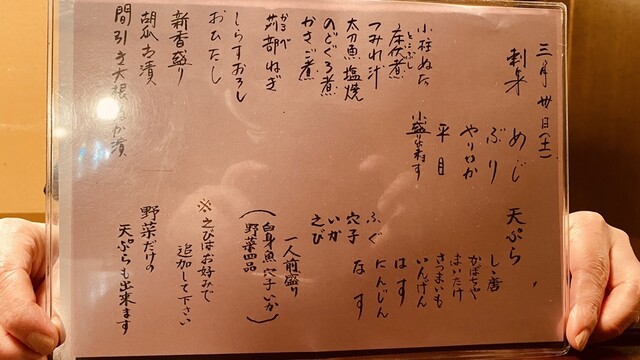 三月卅日(土)
刺身
めじ
ぶり
やりいか
平目
小盛り出来ます
小柱ぬた
とこぶし
床伏煮
つみれ汁
太刀魚塩焼
のどぐろ煮
かさご煮
かるべ
苅部ねぎ
しらすおろし
おひたし
新香盛り
胡瓜古漬
間引き大根ぬか漬
天ぷら
しゝ唐
かぼちゃ
まいたけ
さつまいも
いんげん
はす
にんじん
なす
ふぐ
穴子
いか
えび
一人前盛り
(白身魚 穴子 いか
野菜四品)
※えびはお好みで
追加して下さい
野菜だけの
天ぷらも出来ます